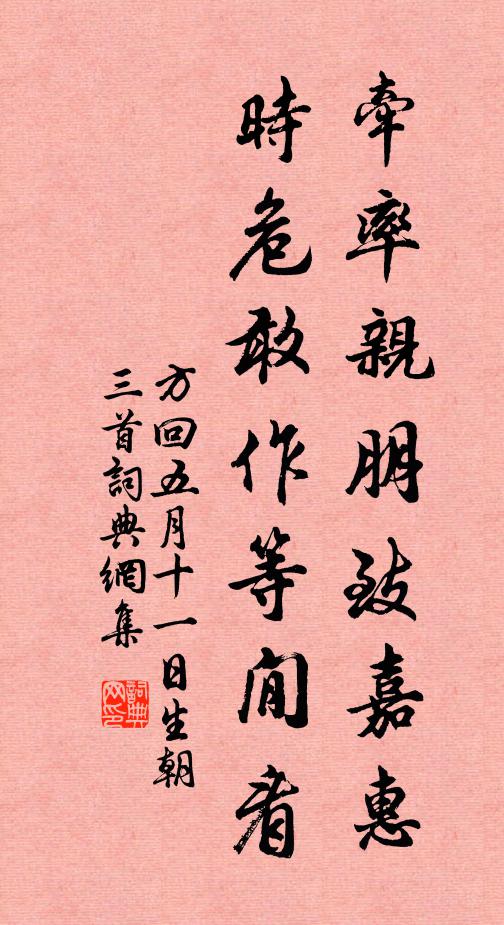 牽率親朋致嘉惠
時危敢作等閒看
方回五月十一日生朝
三首詞典網集
詞典
网印